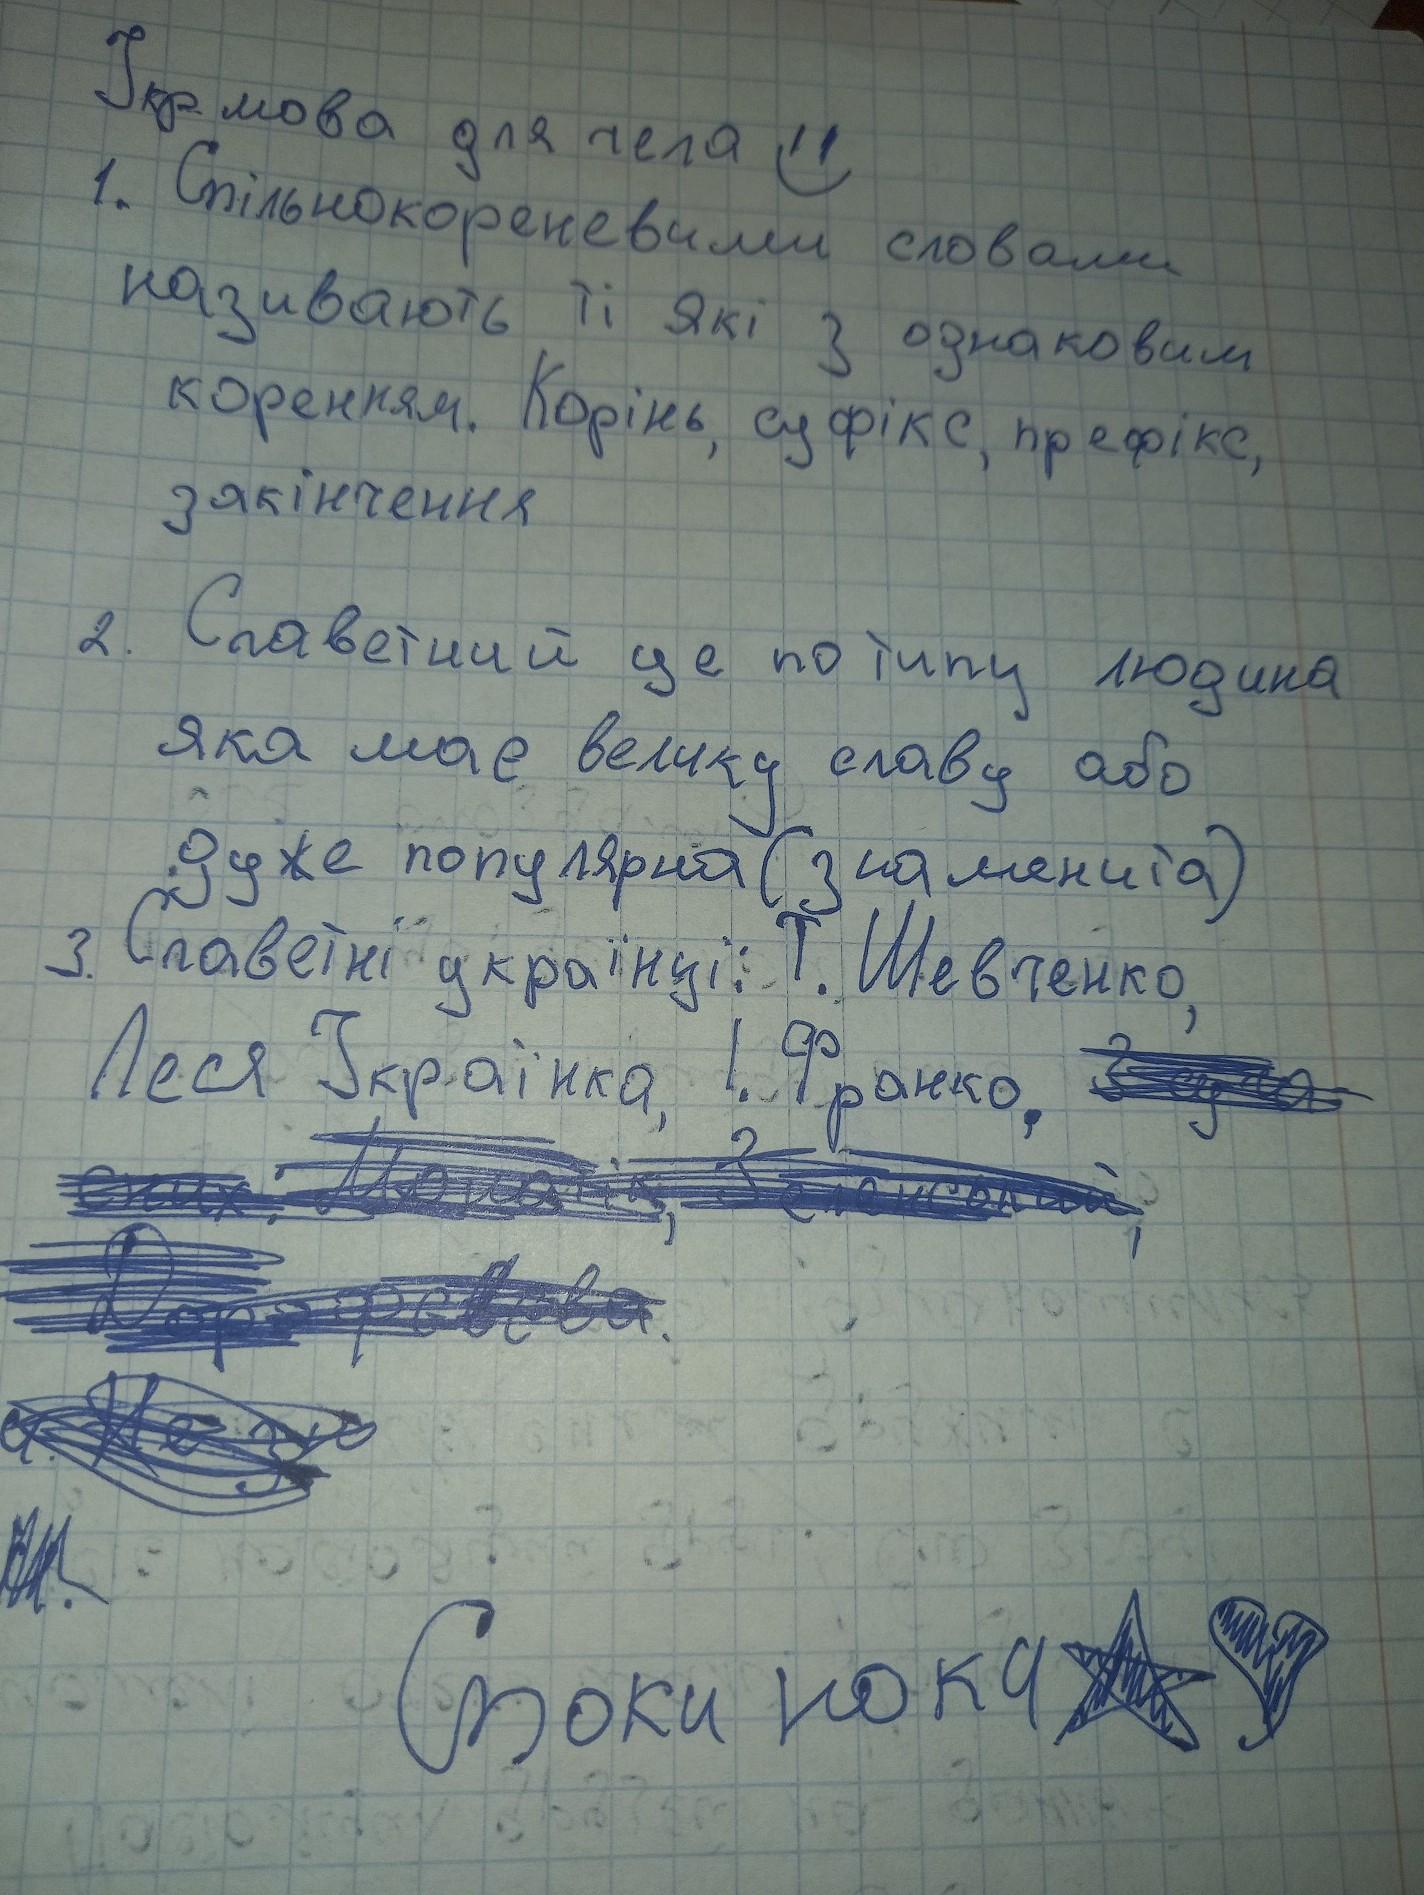 Укр мова для чела
1. Спільнокореневими словами
називають ті які з однаковим
коренням. Корінь, суфікс, префікс,
закінчення
2. Славетний це по типу людина
яка має велику славу або
дуже популярна (знаменита)
3. Славетні українці: Т. Шевченко,
Леся Українка, І. Франко.
Споки ноки